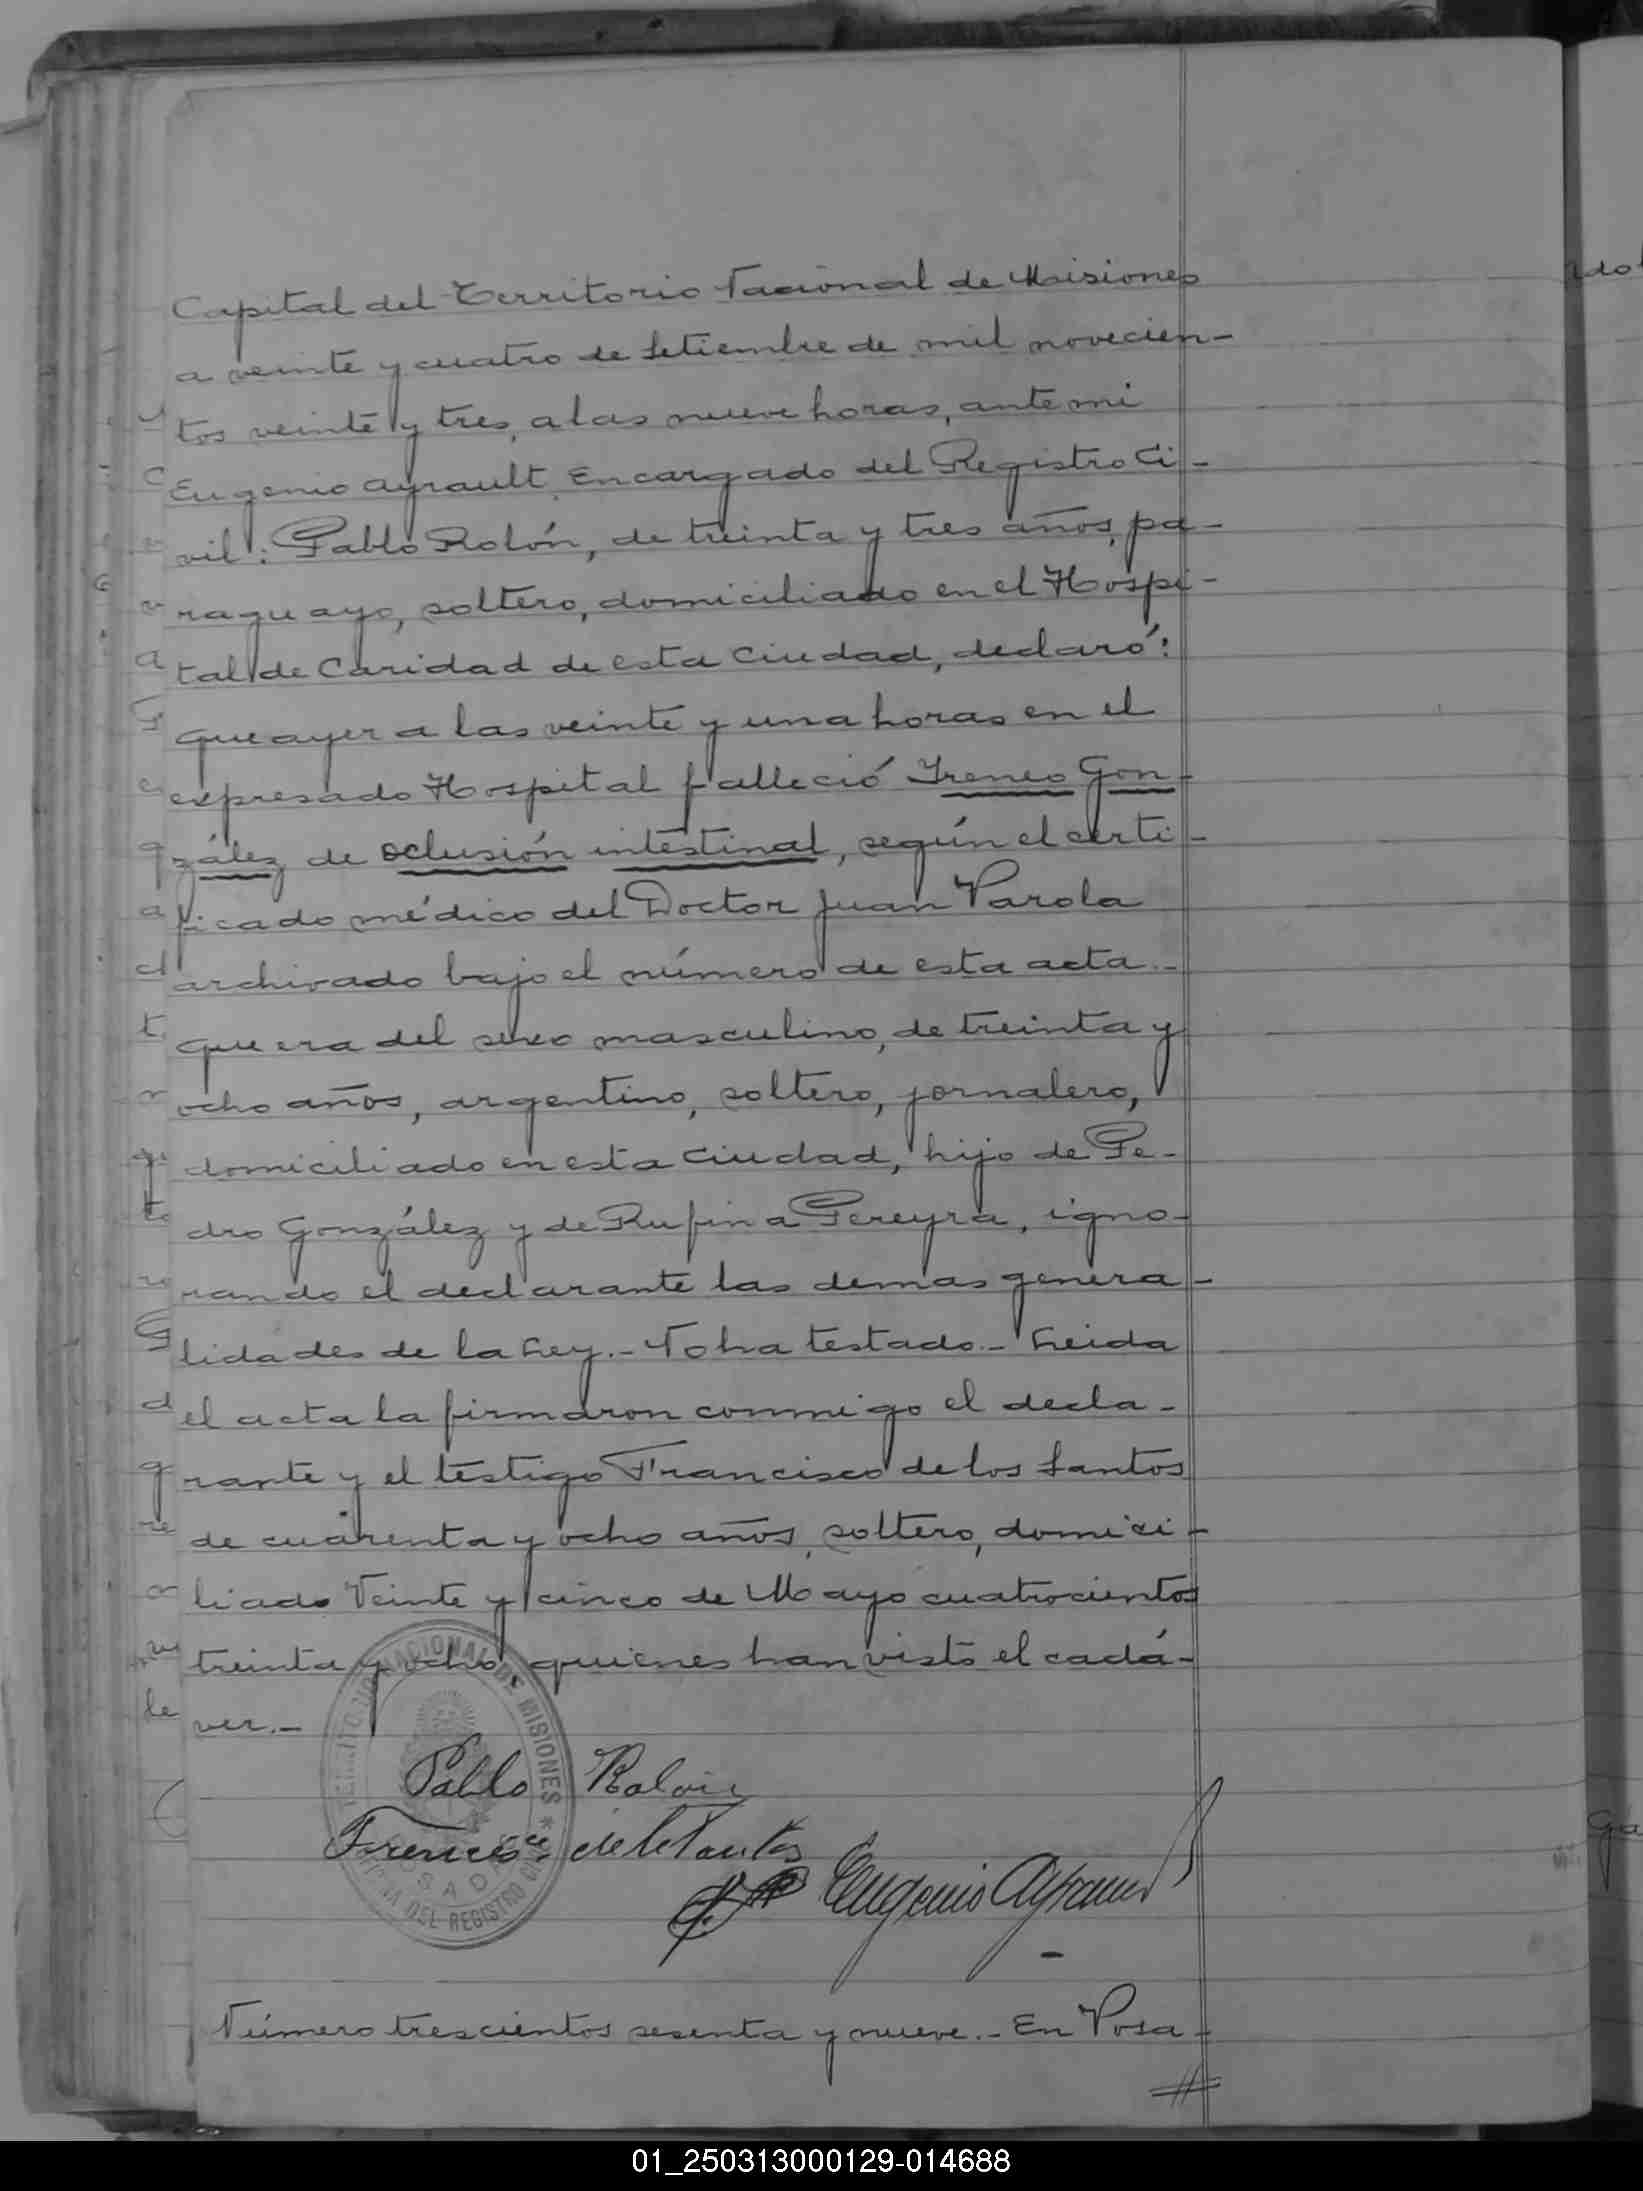 Capital del Territorio Nacional de Misiones
a veinte y cuatro de Setiembre de mil novecien-
tos veinte y tres, a las nueve horas, ante mi
Eugenio Ayrault, Encargado del Registro Ci-
vil: Pablo Rolón, de treinta y tres años, pa-
raguayo, soltero, domiciliado en el Hospi-
tal de Caridad de esta Ciudad, declaró:
que ayer a las veinte y una horas en el
expresado Hospital falleció Ireneo Gon-
zález de oclusión intestinal, según el certi-
ficado médico del Doctor Juan Parola
archivado bajo el número de esta acta.-
que era del sexo masculino, de treinta y
ocho años, argentino, soltero, jornalero,
domiciliado en esta Ciudad, hijo de Pe-
dro González y de Rufina Pereyra, igno-
rando el declarante las demas genera-
lidades de la Ley.- No ha testado.- Leida
el acta la firmaron conmigo el decla-
rante y el testigo Francisco de los Santos
de cuarenta y ocho años, soltero, domici-
liado Veinte y cinco de Mayo cuatrocientos
treinta y ocho quienes han visto el cadá-
ver.-
NACIONAL DE MISIONES * DEL REGISTRO
Pablo Rolon
Eugenio Ayrault
Número trescientos sesenta y nueve.- En Posa-
01_250313000129-014688